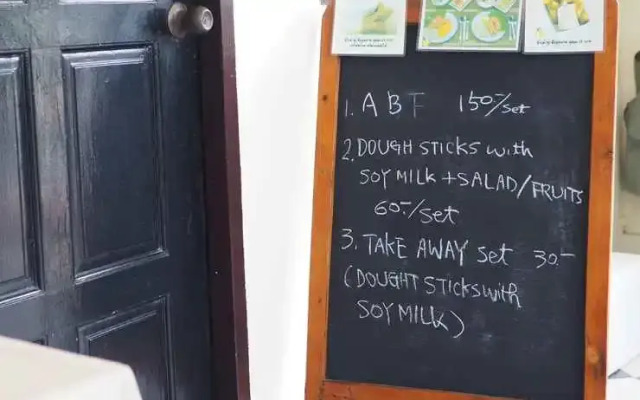 1. A B F 150.-/set
2. DOUGH STICKS with
SOY MILK + SALAD/FRUITS
60.-/set
3. TAKE AWAY set 30.-
(DOUGHT STICKS with
SOY MILK)